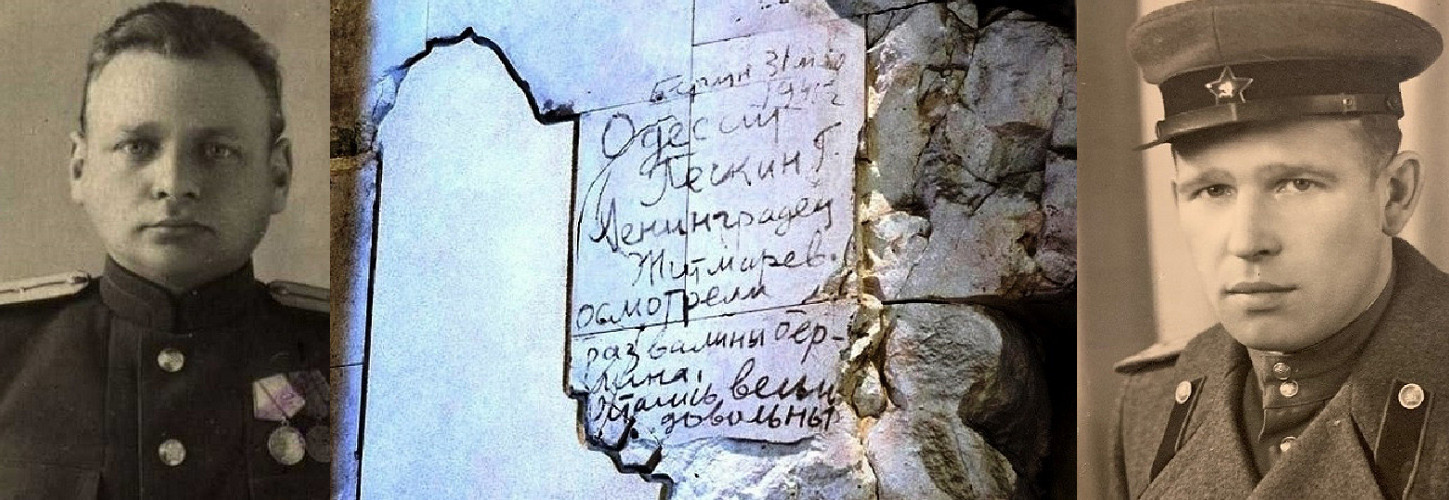 Берлин 31 мая
1945 г
Одессит
Пескин Г.
Ленинградец
Житмарев.
осмотрели
развалины бер-
лина.
Остались весьма
довольны